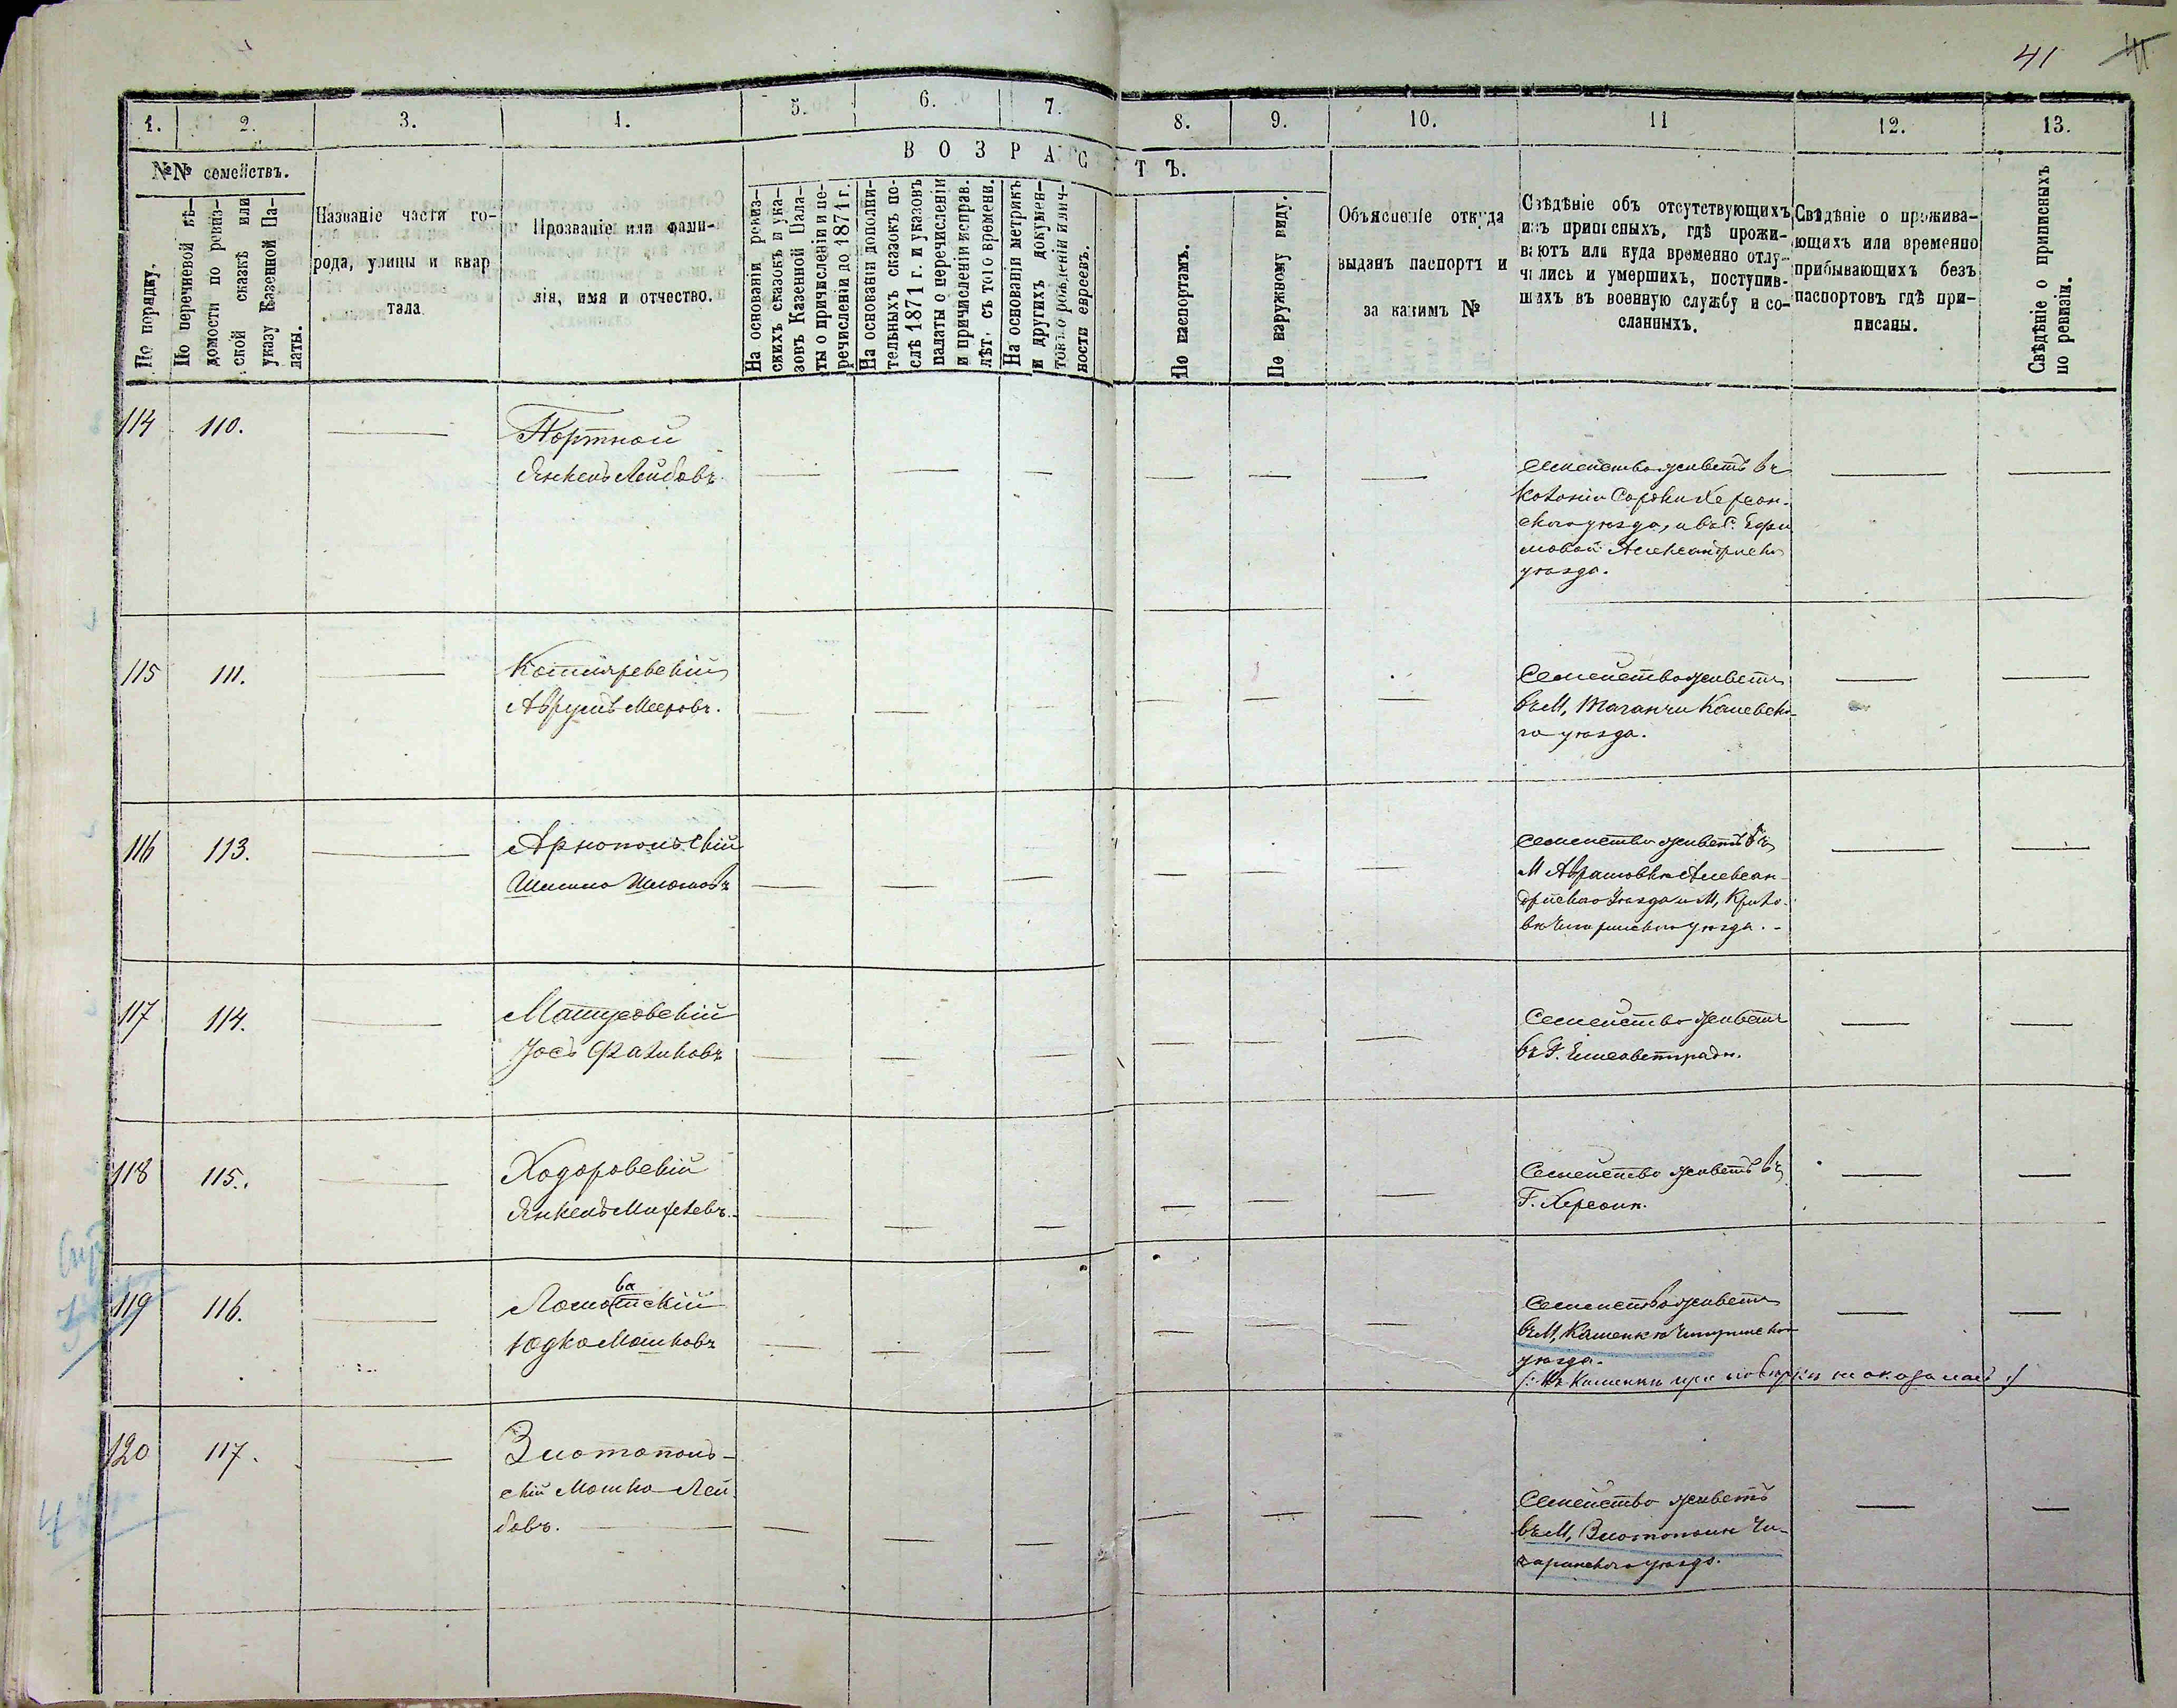 41
1. 2. 3. 4. 5. 6. 7. 8. 9. 10. 11 12. 13.
№№ семействъ.
В О З Р А С Т Ъ.
По порядку.
По перечневой вѣ-
домости по ревиз-
ской сказкѣ или
указу Казенной Па-
латы.
Названіе части го-
рода, улицы и квар
тала
Прозваніе или фами-
лія, имя и отчество.
На основаніи ревиз-
скихъ сказокъ и ука-
зовъ Казенной Пала-
ты о причисленіи и пе-
речисленіи до 1871 г.
На основаніи дополни-
тельныхъ сказокъ по-
слѣ 1871 г. и указовъ
палаты о перечисленіи
и причисленіи исправ.
лѣт. съ того времени.
На основаніи метрикъ
и другихъ докумен-
товъ о рожденіи и лич-
ности евреевъ.
По паспортамъ.
По наружному виду.
Объясненіе откуда
выданъ паспортъ и
за какимъ №
Свѣдѣніе объ отсутствующихъ
изъ приписныхъ, гдѣ прожи-
ваютъ или куда временно отлу-
чились и умершихъ, поступив-
шихъ въ военную службу и со-
сланныхъ.
Свѣдѣніе о прожива-
ющихъ или временно
прибывающихъ безъ
паспортовъ гдѣ при-
писаны.
Свѣдѣніе о приписныхъ
по ревизіи.
114 110.
Портной
Янкель Лейбовъ
Семейство живетъ въ
Колоніи Херсон-
скаго уѣзда, и въ С.
Александрійск
уѣзда.
115 111.
Котляревскій
Аврумъ Мееровъ.
Семейство живетъ
въ М, Таганчи Каневска-
го уѣзда.
116 113.
Арнопольскій
Шимно Шлюмовъ
Семейство живетъ въ
М Аврамовки Алексан-
дрійскаго Уѣзда и М,
Чигиринскаго уѣзда.
117 114.
Матусовскій
Іось Фаликовъ
Семейство живетъ
въ Г. Елисаветградѣ.
118 115.
Ходоровскій
Янкель
Семейство живетъ въ
Г. Херсонѣ.
119 116.
ва
Ломотскій
Юдко Мошковъ
Семейство живетъ
въ М, Каменкѣ Чигиринско
уѣзда.
(: Въ Каменки при повѣркѣ не оказалось :)
120 117.
Златополь-
скій Мошко Лей-
бовъ.
Семейство живетъ
въ М, Златополѣ Чи-
гиринскаго уѣзда.
4